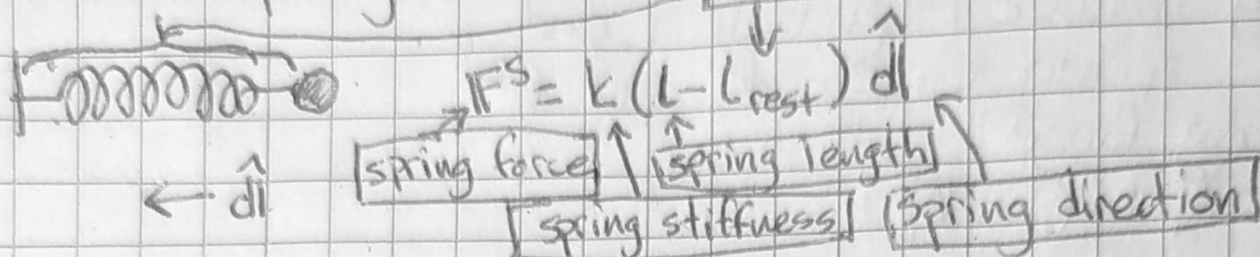 𝔽ˢ = k (l - l_rest) d̂
spring force spring length
← d̂
spring stiffness spring direction